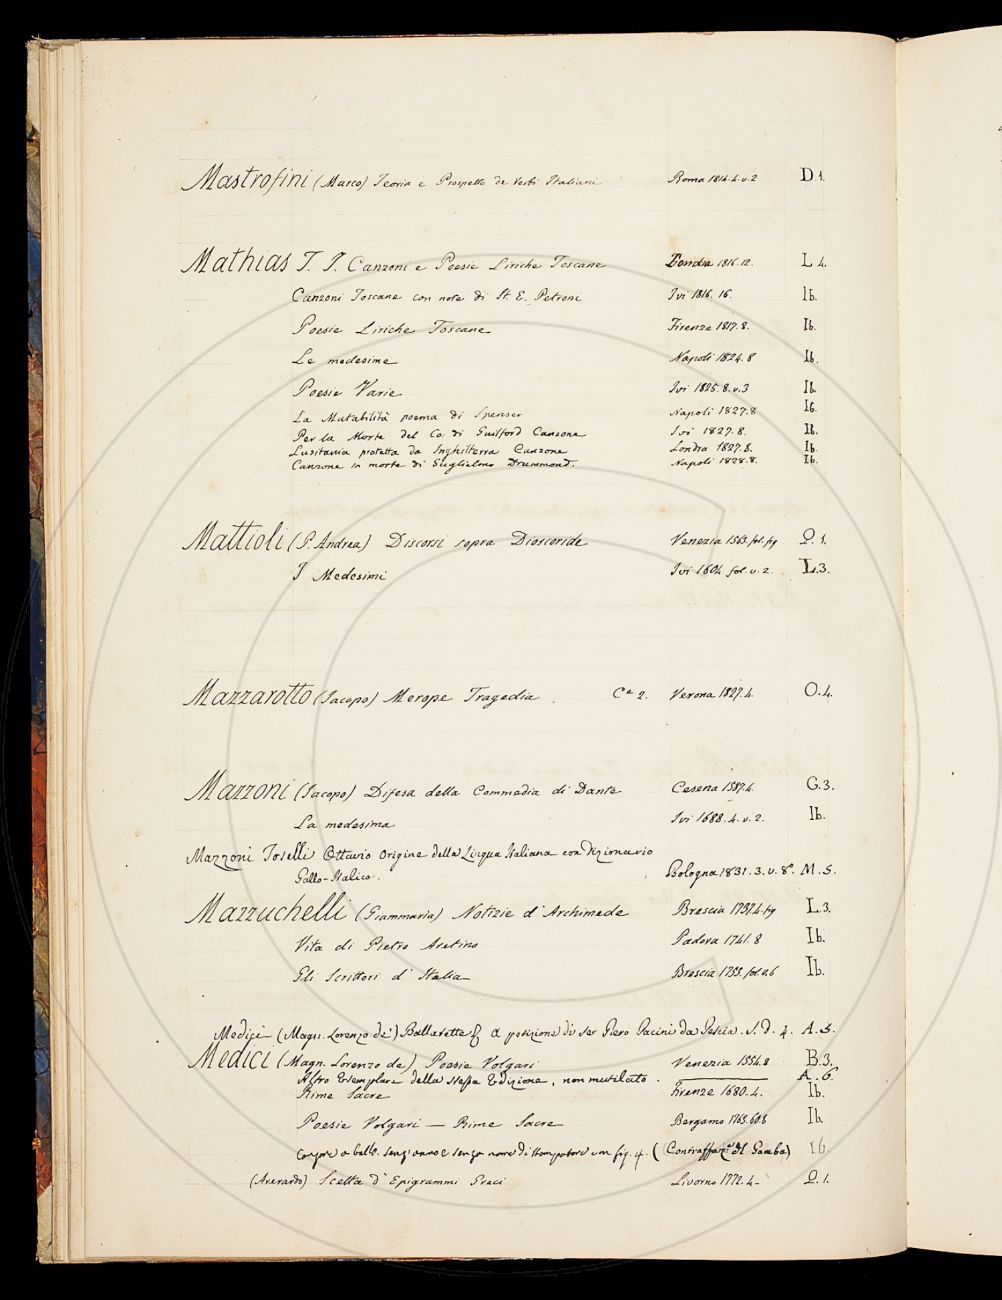 Mastrofini (Marco) Teoria e Prospetto de Verbi Italiani Roma 1814. 4. v. 2 D. 1.
Mathias T. J. Canzoni e Poesie Liriche Toscane Londra 1816. 12. L 4.
Canzoni Toscane con note di St. E. Petroni Ivi 1816. 16. Ib.
Poesie Liriche Toscane Firenze 1817. 8. Ib.
Le medesime Napoli 1824. 8 Ib.
Poesie Varie Ivi 1825. 8. v. 3 Ib.
La Mutabilità poema di Spenser Napoli 1827. 8 Ib.
Per la Morte del Co: di Guilford Canzone Ivi 1827. 8. Ib.
Lusitania protetta da Inghilterra Canzone Londra 1827. 8. Ib.
Canzone in morte di Guglielmo Drummond. Napoli 1828. 8. Ib.
Mattioli (P. Andrea) Discorsi sopra Dioscoride Venezia 1563. fol. fig Q. 1.
I Medesimi Ivi 1604 fol. v. 2. L. 3.
Mazzarotto (Jacopo) Merope Tragedia. Ce 2. Verona 1827. 4. O. 4.
Mazzoni (Jacopo) Difesa della Commedia di Dante Cesena 1587. 4. G. 3.
La medesima Ivi 1688. 4. v. 2. Ib.
Mazzoni Toselli Ottavio Origine della Lingua Italiana con Dizionario
Gallo-Italico. Bologna 1831. 3. v. 8º. M. 5.
Mazzuchelli (Giammaria) Notizie d'Archimede Brescia 1737. 4. fig L. 3.
Vita di Pietro Aretino Padova 1741. 8 Ib.
Gli Scrittori d'Italia Brescia 1753. fol. v. 6 Ib.
Medici (Magn. Lorenzo de') Ballatette A petizione di Ser Piero Pacini da Pescia. S. D. 4. A. 5.
Medici (Magn. Lorenzo de) Poesie Volgari Venezia 1554. 8 B. 3.
Altro Esemplare della stessa Edizione, non mutilato. A. 6.
Rime Sacre Firenze 1680. 4. Ib.
Poesie Volgari — Rime Sacre Bergamo 1763. 60. 8 Ib.
senz'anno e senza nome di stampatore con fig. 4. (Contraffaz. del Gamba) Ib.
(Averardo) Scelta d'Epigrammi Greci Livorno 1772. 4 Q. 1.